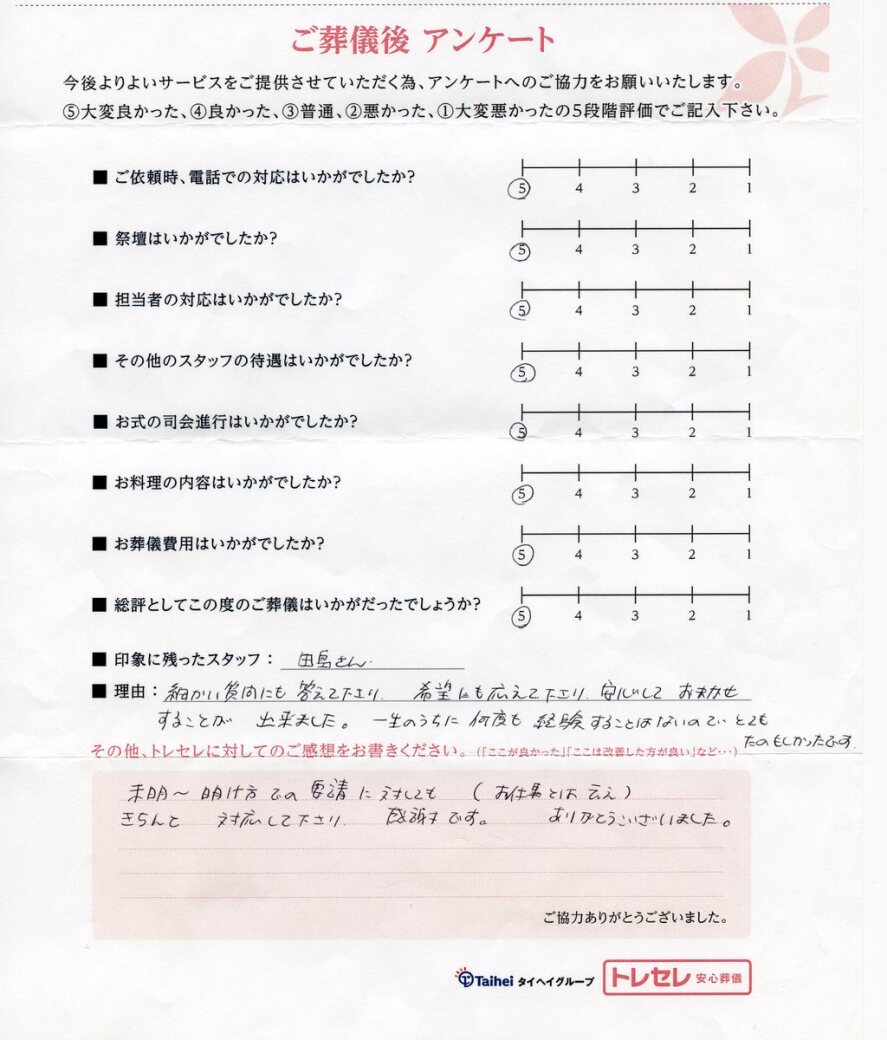 ご葬儀後 アンケート
今後よりよいサービスをご提供させていただく為、アンケートへのご協力をお願いいたします。
⑤大変良かった、④良かった、③普通、②悪かった、①大変悪かったの5段階評価でご記入下さい。
■ ご依頼時、電話での対応はいかがでしたか? 5 4 3 2 1
■ 祭壇はいかがでしたか? 5 4 3 2 1
■ 担当者の対応はいかがでしたか? 5 4 3 2 1
■ その他のスタッフの待遇はいかがでしたか? 5 4 3 2 1
■ お式の司会進行はいかがでしたか? 5 4 3 2 1
■ お料理の内容はいかがでしたか? 5 4 3 2 1
■ お葬儀費用はいかがでしたか? 5 4 3 2 1
■ 総評としてこの度のご葬儀はいかがだったでしょうか? 5 4 3 2 1
■ 印象に残ったスタッフ: 田島さん.
■ 理由: 細かい質問にも 答えて下さり. 希望にも応えて下さり. 安心して おまかせ
することが 出来ました。 一生のうちに 何度も 経験することはないので、とても
たのもしかったです.
その他、トレセレに対してのご感想をお書きください。(「ここが良かった」「ここは改善した方が良い」など・・・)
未明〜明け方での要請に対しても (お仕事とは云え)
きちんと 対応して下さり. 感謝です。 ありがとうございました。
ご協力ありがとうございました。
Taihei タイヘイグループ トレセレ 安心葬儀